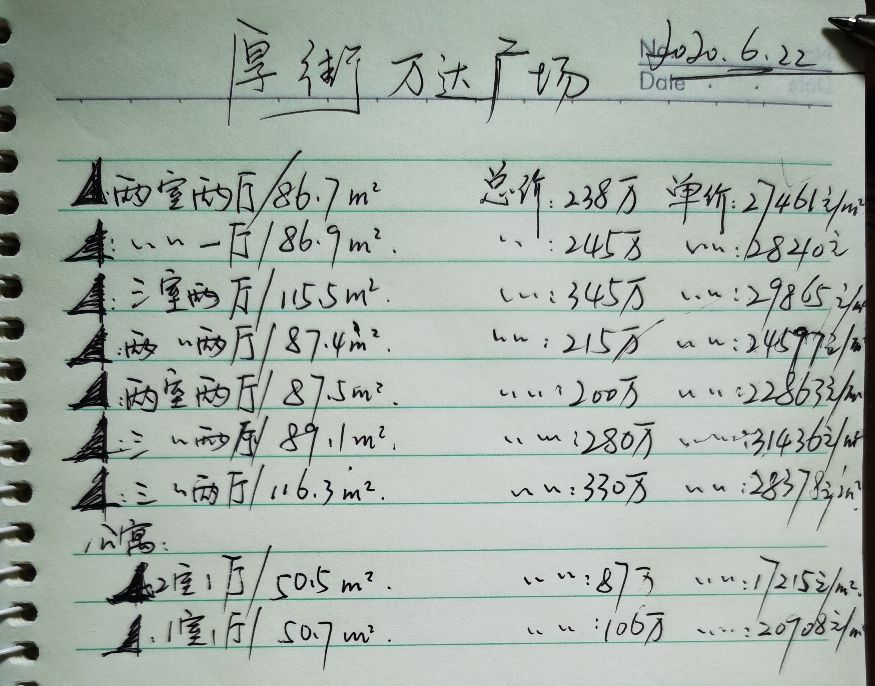 厚街万达广场
No 2020.6.22
Date
两室两厅/86.7m² 总价:238万 单价:27461元/m²
:〃〃一厅/86.9m². 〃:245万 〃〃:28240元
:三室两厅/115.5m². 〃〃:345万 〃〃:29865元/m²
:两〃两厅/87.4m² 〃〃:215万 〃〃:24597元/m
:两室两厅/87.5m². 〃〃:200万 〃〃:22863元/m
:三〃两厅/89.1m². 〃〃:280万 〃〃:31436元/m²
:三〃两厅/116.3m². 〃〃:330万 〃〃:28378元/m²
公寓:
2室1厅/50.5m². 〃〃:87万 〃〃:17215元/m².
:1室1厅/50.7m². 〃〃:106万 〃〃:20908元/m